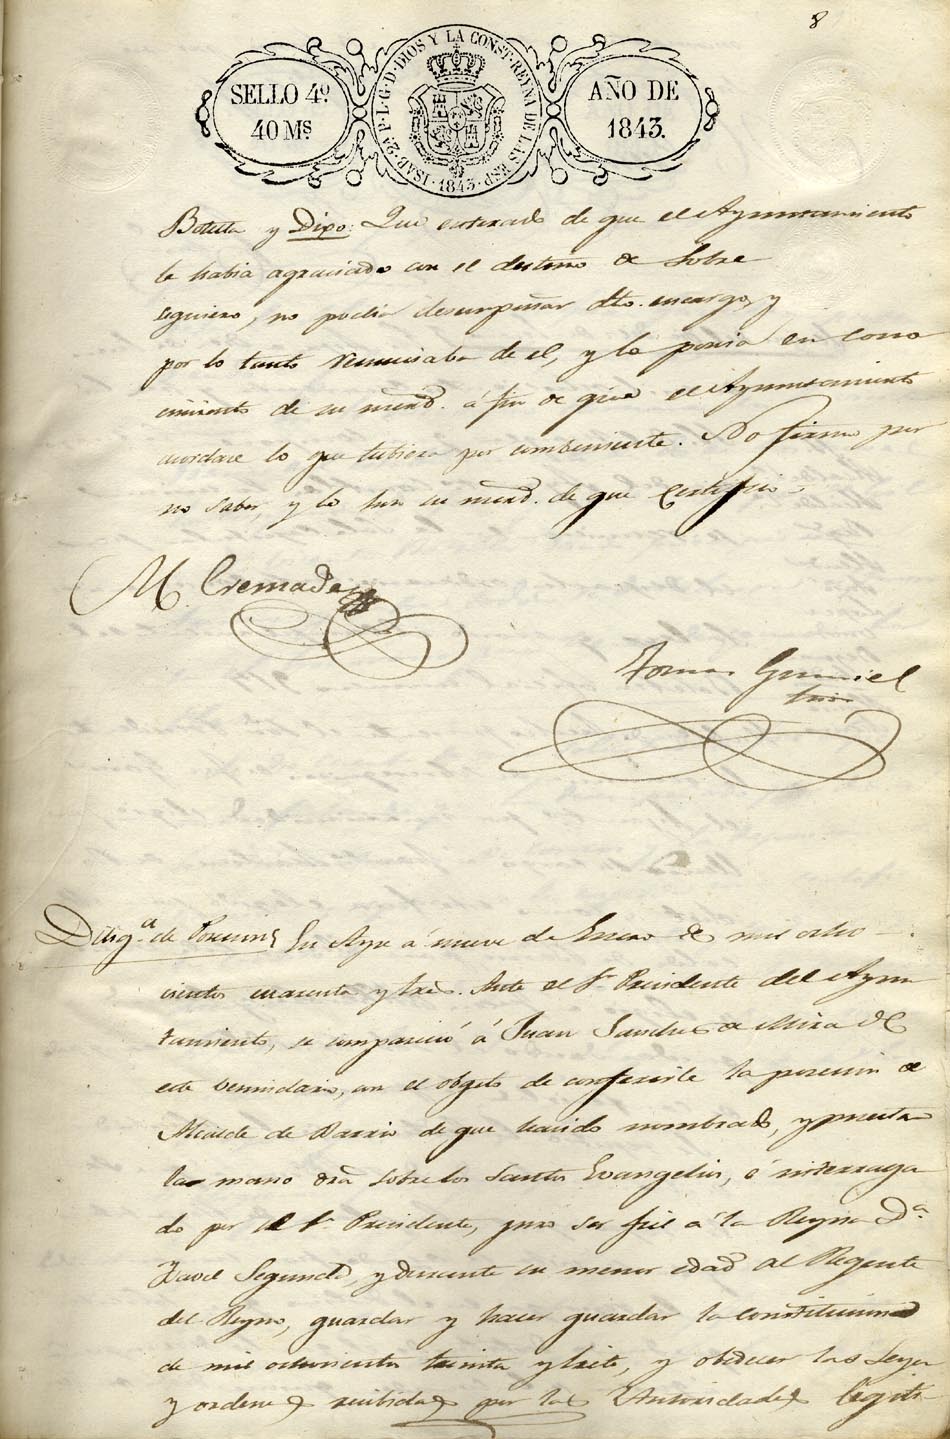 8
SELLO 4º
40 Ms
ISAB. 2ª P. L. G. D. DIOS Y LA CONST. REYNA DE LAS ESP. 1843
AÑO DE
1843.
y Dixo: Que enterado de que el Ayuntamiento
le habia agraciado con el destino de Sobre
eguiero, no podia desempeñar dho. encargo, y
por lo tanto renunciaba de el, y lo ponia en cono
cimiento de su merd. á fin de que el Ayuntamiento
acordare lo que tubiera por combeniente. No firma por
no saber, y lo hizo su merd. de que Certifico
M. Cremades
Tomas Gumiel
Diligª de Posesion En á nueve de Enero de mil ocho
cientos cuarenta y tres. Ante el Sr Presidente del Ayun
tamiento, se compareció á Juan Sanchez de Mira de
este vecindario, con el objeto de conferirle la posesion de
Alcalde de Barrio de que ha sido nombrado, y puesta
la mano dra sobre los Santos Evangelios, é interroga
do por el Sr Presidente, juro ser fiel á la Reyna Dª
Ysavel Segunda, y durante su menor edad al Regente
del Reyno, guardar y hacer guardar la constitucion
de mil ochocientos treinta y siete, y obedecer las Leyes
y ordenes recibidas por las Autoridades legiti-